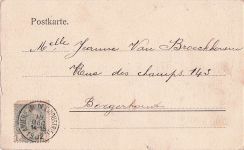 Postkarte.
Melle Jeanne Van Broeckhoven
Rue des champs 143
Borgerhout